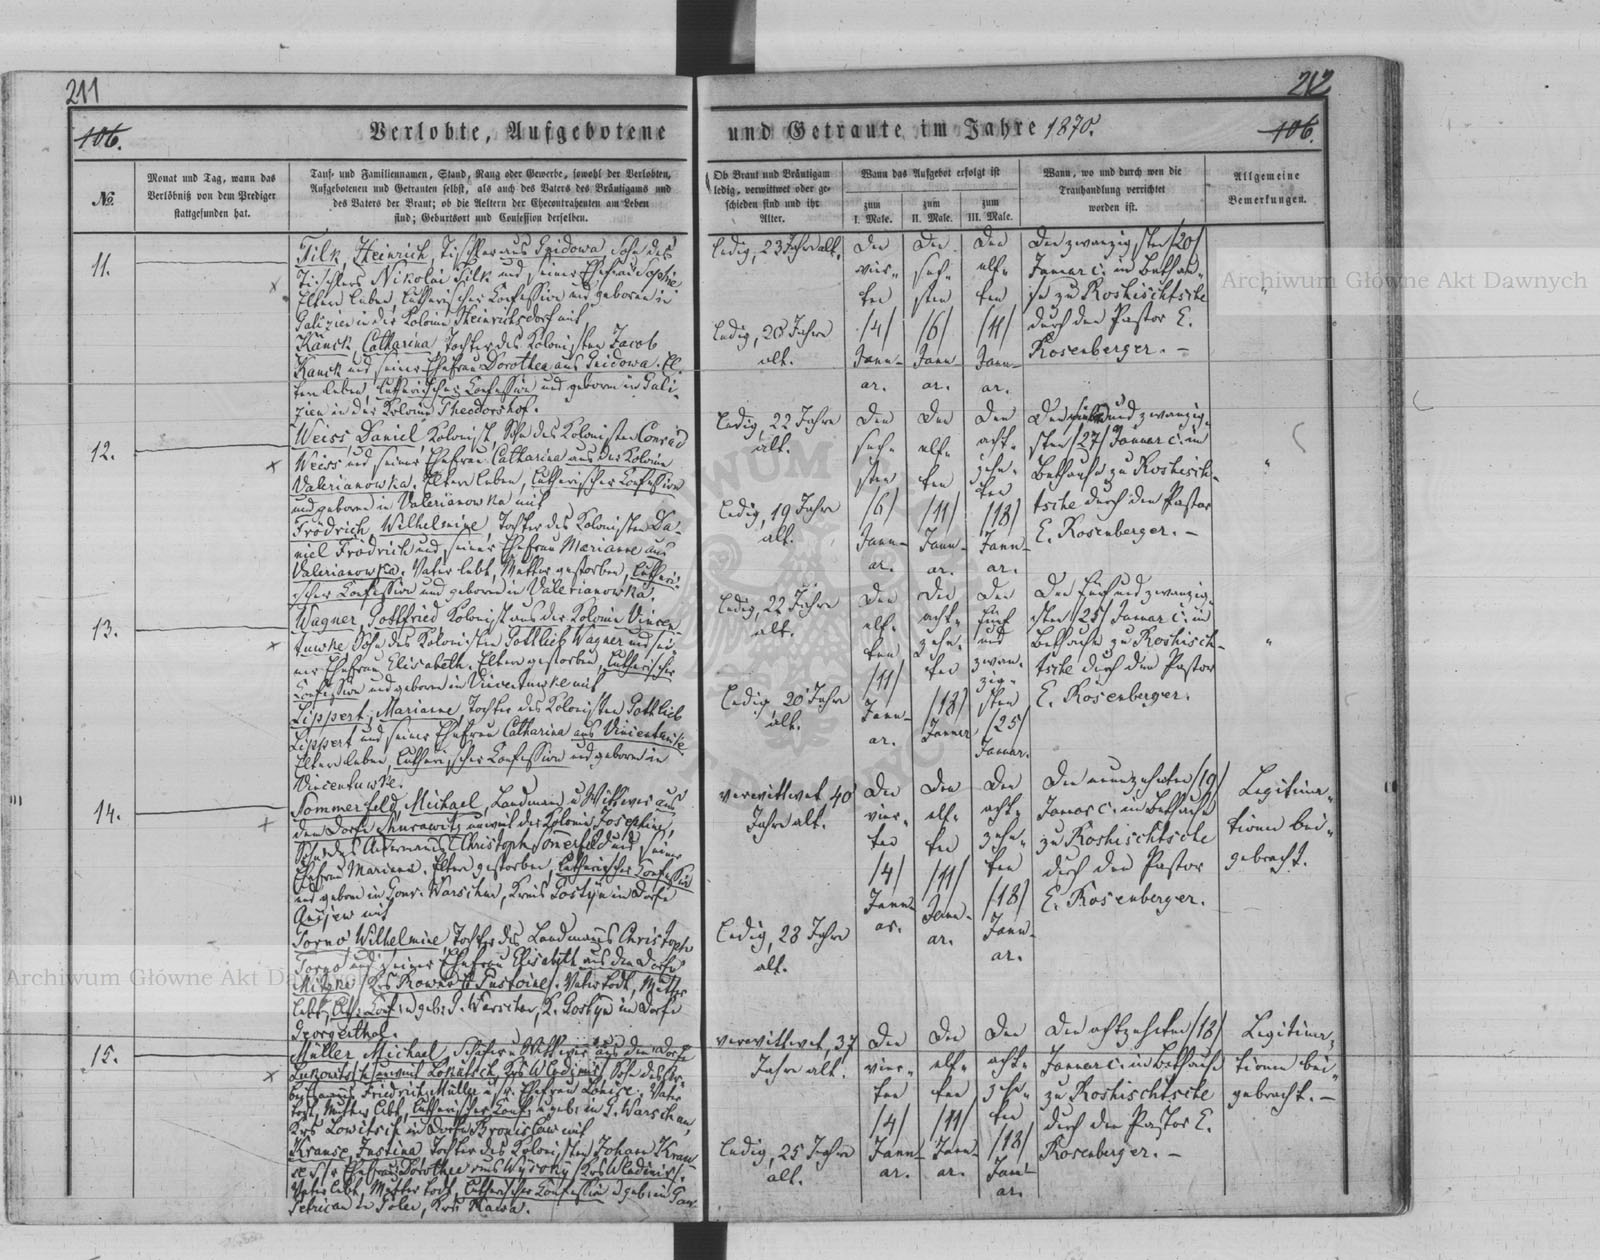 211
212
106.
Verlobte, Aufgebotene
und Getraute im Jahre 1870.
106.
№
Monat und Tag, wann das
Verlöbniß von dem Prediger
stattgefunden hat.
Tauf- und Familiennamen, Stand, Rang oder Gewerbe, sowohl der Verlobten,
Aufgebotenen und Getrauten selbst, als auch des Vaters des Bräutigams und
des Vaters der Braut; ob die Aeltern der Ehecontrahenten am Leben
sind; Geburtsort und Confession derselben.
Ob Braut und Bräutigam
ledig, verwittwet oder ge-
schieden sind und ihr
Alter.
Wann das Aufgebot erfolgt ist
zum
I. Male.
zum
II. Male.
zum
III. Male.
Wann, wo und durch wen die
Trauhandlung verrichtet
worden ist.
Allgemeine
Bemerkungen.
11.
Filk, Heinrich, Tischler aus Gnidowa, Sohn des
Tischlers Nikolai Filk und seiner Ehefrau Sophie
Eltern leben, lutherischer Confession und geboren in
Galizien in der Kolonie Heinrichsdorf mit
Kauck Catharina, Tochter des Kolonisten Jacob
Kauck und seiner Ehefrau Dorothea aus Gnidowa. El-
tern leben, lutherischer Confession und geboren in Gali-
zien in der Kolonie Theodorshof.
ledig, 23 Jahre alt.
ledig, 20 Jahre
alt.
Den
vier-
ten
/4/
Janu-
ar.
Den
sech-
sten
/6/
Janu-
ar.
Den
elf-
ten
/11/
Janu-
ar.
Den zwanzigsten /20/
Januar c. im Bethau-
se zu Roshischtsche
durch den Pastor E.
Rosenberger. –
"
12.
Weiss, Daniel Kolonist, Sohn des Kolonisten Conrad
Weiss und seiner Ehefrau Catharina aus der Kolonie
Valerianowka. Eltern leben, lutherischer Confession
und geboren in Valerianowka mit
Frödrich, Wilhelmine, Tochter des Kolonisten Da-
niel Frödrich und seiner Ehefrau Marianne aus
Valerianowka. Vater lebt, Mutter gestorben, lutheri-
scher Confession und geboren in Valerianowka.
ledig, 22 Jahre
alt.
ledig, 19 Jahre
alt.
Den
sech-
sten
/6/
Janu-
ar.
Den
elf-
ten
/11/
Janu-
ar.
Den
acht-
zehn-
ten
/18/
Janu-
ar.
Den und zwanzig-
sten /27/ Januar c. im
Bethause zu Roshisch-
tsche durch den Pastor
E. Rosenberger. –
"
13.
Wagner, Gottfried Kolonist aus der Kolonie Vincen-
tuwke Sohn des Kolonisten Gottlieb Wagner und sei-
ner Ehefrau Elisabeth. Eltern gestorben, lutherischer
Confession und geboren in Vincentuwke mit
Lippert, Marianne, Tochter des Kolonisten Gottlieb
Lippert und seiner Ehefrau Catharina aus Vincentuwke
Eltern leben, lutherischer Confession und geboren in
Vincentuwke.
ledig, 22 Jahre
alt.
ledig, 20 Jahre
alt.
Den
elf-
ten
/11/
Janu-
ar.
Den
acht-
zehn-
ten
/18/
Januar
Den
fünf
und
zwan-
zig-
sten
/25/
Januar.
Den fünf und zwanzig-
sten /25/ Januar c. im
Bethause zu Roshisch-
tsche durch den Pastor
E. Rosenberger.
"
14.
Sommerfeld, Michael, Landmann u Wittwer aus
dem Dorfe unweit der Kolonie Josephine,
Sohn des Christoph Sommerfeld und seiner
Ehefrau Marianna. Eltern gestorben, lutherischer Confession
und geboren in Gouv. Warschau, Kreis Gostyn im Dorfe
mit
Torno Wilhelmine, Tochter des Landmanns Christoph
Torno und seiner Ehefrau Elisabeth aus dem Dorfe
Vater todt, Mutter
lebt, luth. Conf. u geb. i. G. Warschau, K. Gostyn im Dorfe
Georgenthal.
verwittwet 40
Jahre alt.
ledig, 28 Jahre
alt.
Den
vier-
ten
/4/
Janu-
ar.
Den
elf-
ten
/11/
Janu-
ar.
Den
acht-
zehn-
ten
/18/
Janu-
ar.
Den neunzehnten /19/
Januar c. im Bethause
zu Roshischtsche
durch den Pastor
E. Rosenberger.
Legitima-
tionen bei-
gebracht.
15.
Müller, Michael, u Wittwer aus dem Dorfe
unweit Lokatsch, Krs Wladimir, Sohn des
Friedrich Müller u s. Ehefrau Louise. Vater
todt, Mutter lebt, lutherischer Conf. u geb. in G. Warschau,
Krs Lowitsch im Dorfe Bronislaw mit
Krause, Justina, Tochter des Kolonisten Johann Krau-
se u s. Ehefrau Dorothea aus Wysoky Krs Wladimir.
Vater lebt, Mutter todt, lutherischer Confession u geb. in
Krs Rawa.
verwittwet, 37
Jahre alt.
ledig, 25 Jahre
alt.
Den
vier-
ten
/4/
Janu-
ar.
Den
elf-
ten
/11/
Janu-
ar.
Den
acht-
zehn-
ten
/18/
Janu-
ar.
Den achtzehnten /18/
Januar c. im Bethause
zu Roshischtsche
durch den Pastor E.
Rosenberger. –
Legitima-
tionen bei-
gebracht. –
Archiwum Główne Akt Dawnych
Archiwum Główne Akt Dawnych